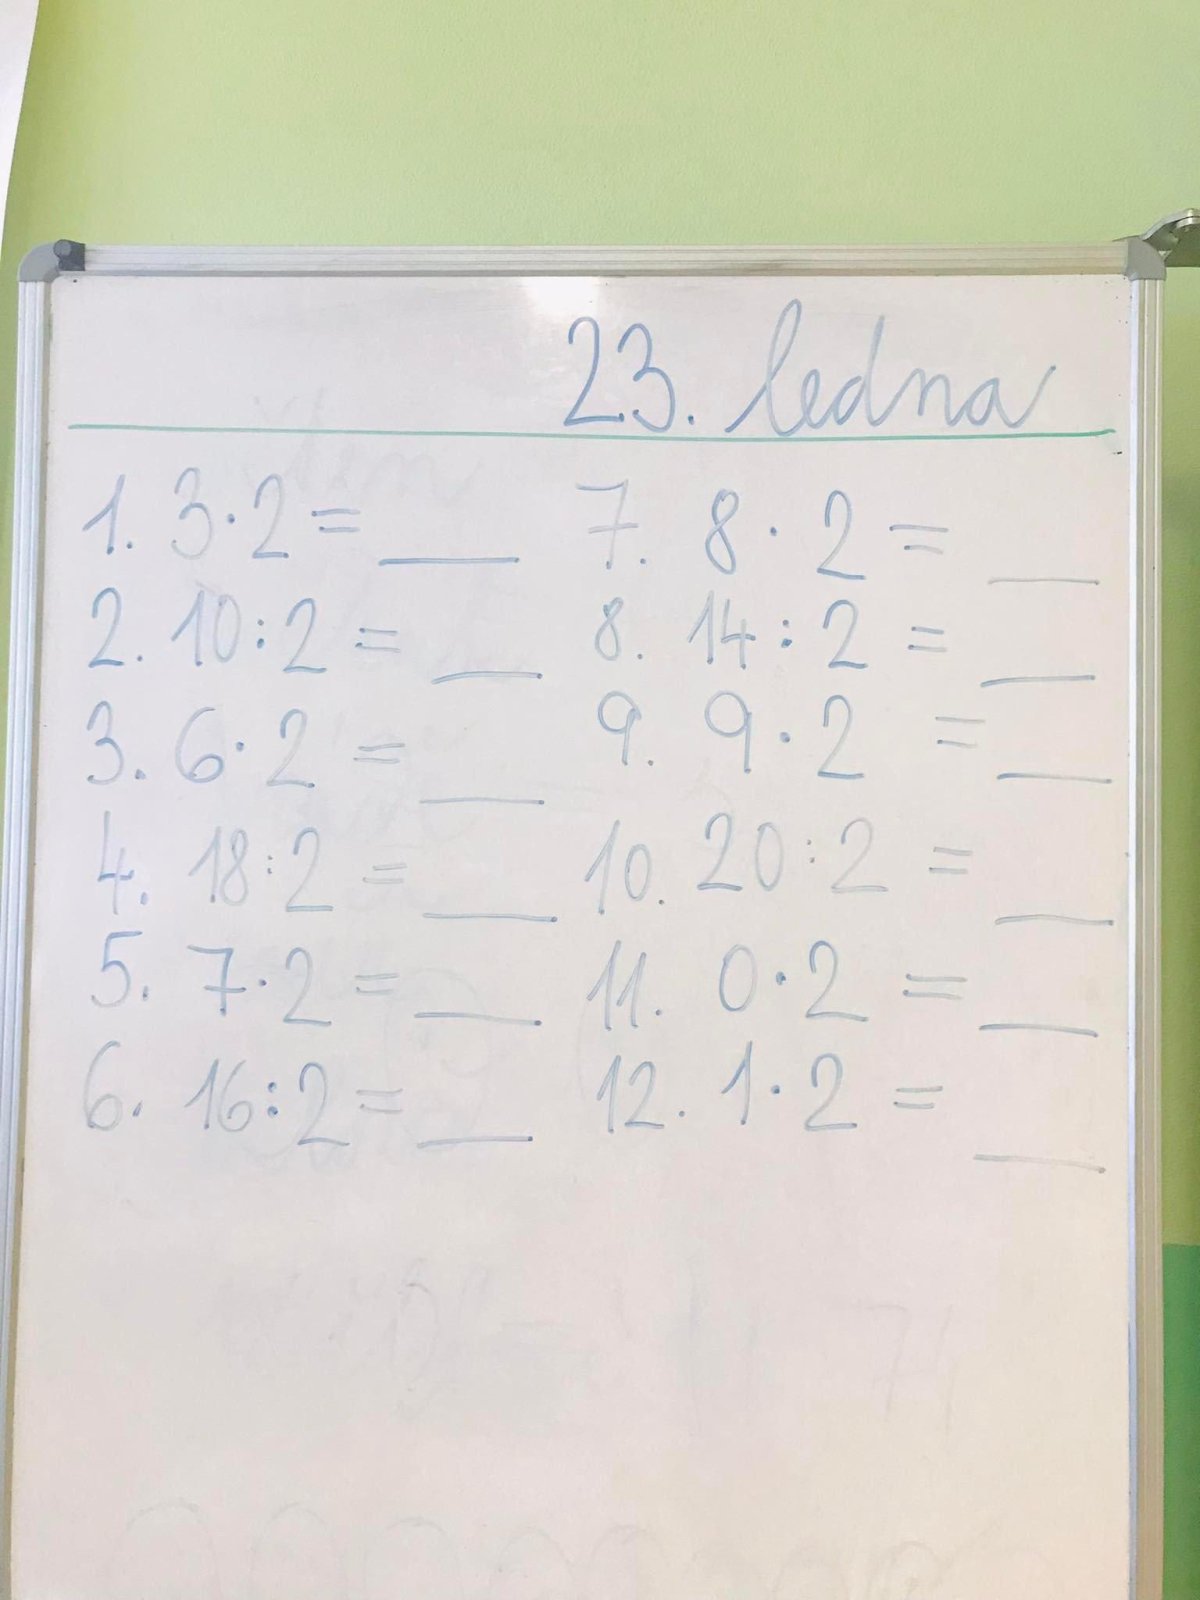 23. ledna
1. 3·2= ___
2. 10:2 = ___
3. 6·2 = ___
4. 18:2 = ___
5. 7·2 = ___
6. 16:2 = ___
7. 8·2 = ___
8. 14:2 = ___
9. 9·2 = ___
10. 20:2 = ___
11. 0·2 = ___
12. 1·2 = ___